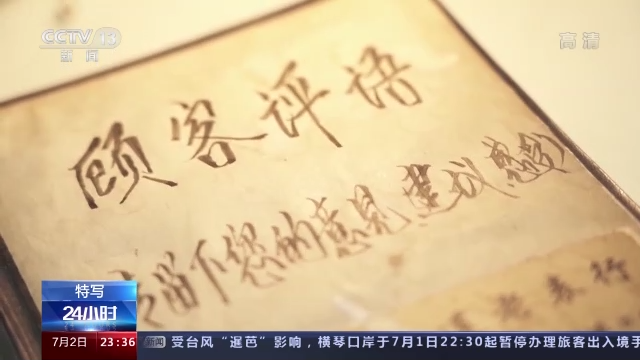 CCTV 13
新闻
高清
顾客评语
请留下您的意见建议感受
特写
24小时
7月2日 23:36 新闻 受台风“暹芭”影响，横琴口岸于7月1日22:30起暂停办理旅客出入境手